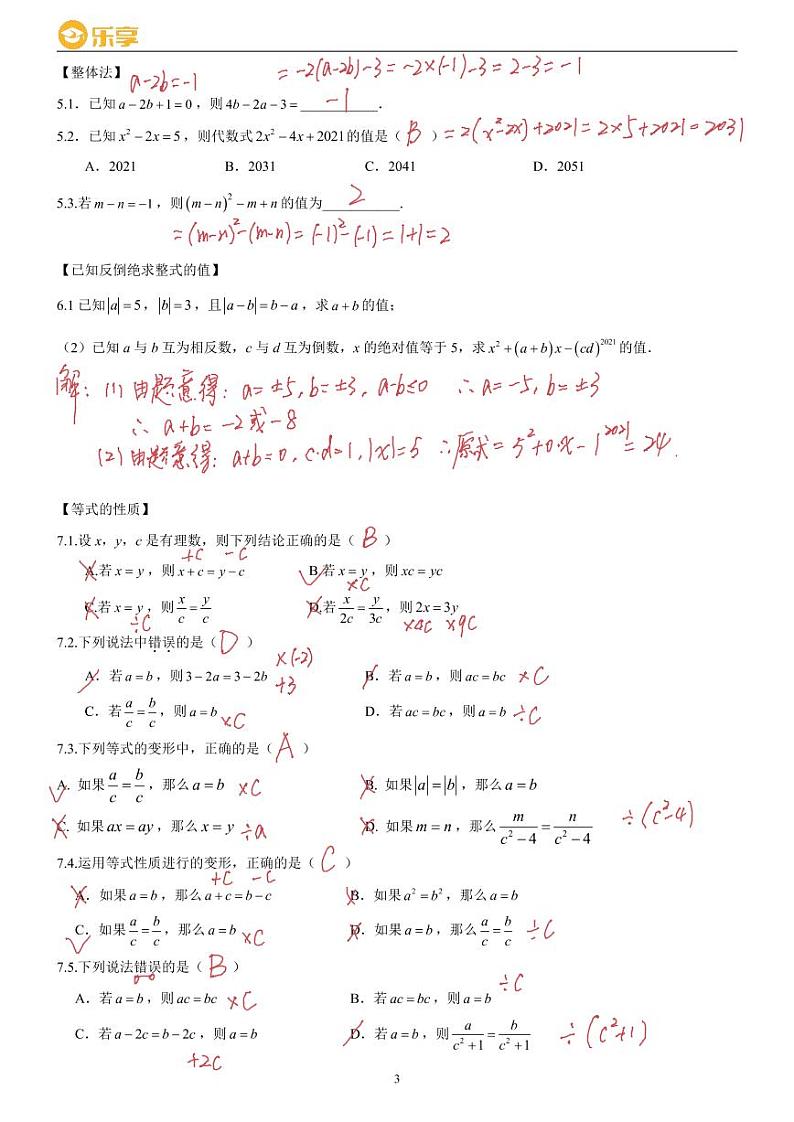 乐享
【整体法】 a-2b=-1 =-2(a-2b)-3=-2×(-1)-3=2-3=-1
5.1. 已知 a-2b+1=0, 则 4b-2a-3=-1.
5.2. 已知 x²-2x=5, 则代数式 2x²-4x+2021 的值是 ( B ) =2(x²-2x)+2021=2×5+2021=2031
A. 2021 B. 2031 C. 2041 D. 2051
5.3.若 m-n=-1, 则 (m-n)²-m+n 的值为 2.
=(m-n)²-(m-n)=(-1)²-(-1)=1+1=2
【已知反倒绝求整式的值】
6.1 已知 |a|=5, |b|=3, 且 |a-b|=b-a, 求 a+b 的值;
(2) 已知 a 与 b 互为相反数, c 与 d 互为倒数, x 的绝对值等于 5, 求 x²+(a+b)x-(cd)²⁰²¹ 的值.
解: (1) 由题意得: a=±5, b=±3, a-b≤0 ∴a=-5, b=±3
∴ a+b=-2或-8
(2) 由题意得: a+b=0, c·d=1, |x|=5 ∴原式=5²+0·x-1²⁰²¹=24.
【等式的性质】
7.1.设 x, y, c 是有理数, 则下列结论正确的是 ( B )
+c -c
A.若 x=y, 则 x+c=y-c B.若 x=y, 则 xc=yc
×c
C.若 x=y, 则 x/c=y/c D.若 x/2c=y/3c, 则 2x=3y
÷c ×4c ×9c
7.2.下列说法中错误的是 ( D )
×(-2)
A. 若 a=b, 则 3-2a=3-2b +3 B. 若 a=b, 则 ac=bc ×c
C. 若 a/c=b/c, 则 a=b ×c D. 若 ac=bc, 则 a=b ÷c
7.3.下列等式的变形中, 正确的是 ( A )
A. 如果 a/c=b/c, 那么 a=b ×c B. 如果 |a|=|b|, 那么 a=b
C. 如果 ax=ay, 那么 x=y ÷a D. 如果 m=n, 那么 m/(c²-4)=n/(c²-4) ÷(c²-4)
7.4.运用等式性质进行的变形, 正确的是 ( C )
+c -c
A. 如果 a=b, 那么 a+c=b-c B. 如果 a²=b², 那么 a=b
C. 如果 a/c=b/c, 那么 a=b ×c D. 如果 a=b, 那么 a/c=b/c ÷c
7.5.下列说法错误的是 ( B )
÷c
A. 若 a=b, 则 ac=bc ×c B. 若 ac=bc, 则 a=b
C. 若 a-2c=b-2c, 则 a=b D. 若 a=b, 则 a/(c²+1)=b/(c²+1) ÷(c²+1)
+2c
3